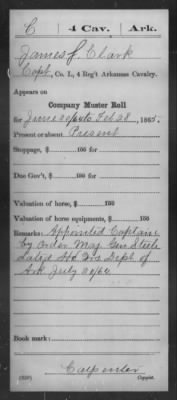 C | 4 Cav. | Ark.
James J. Clark
Capt, Co. L, 4 Reg't Arkansas Cavalry.
Appears on
Company Muster Roll
for June 30/64 to Feb 28, 1865.
Present or absent Present
Stoppage, $ 100 for
Due Gov't, $ 100 for
Valuation of horse, $ 100
Valuation of horse equipments, $ 100
Remarks: Appointed Captain
by order Maj. Gen Steele
dated Hd. Qrs Dept. of
Ark July 30/64
Book mark:
(358)
Carpenter
Copyist.